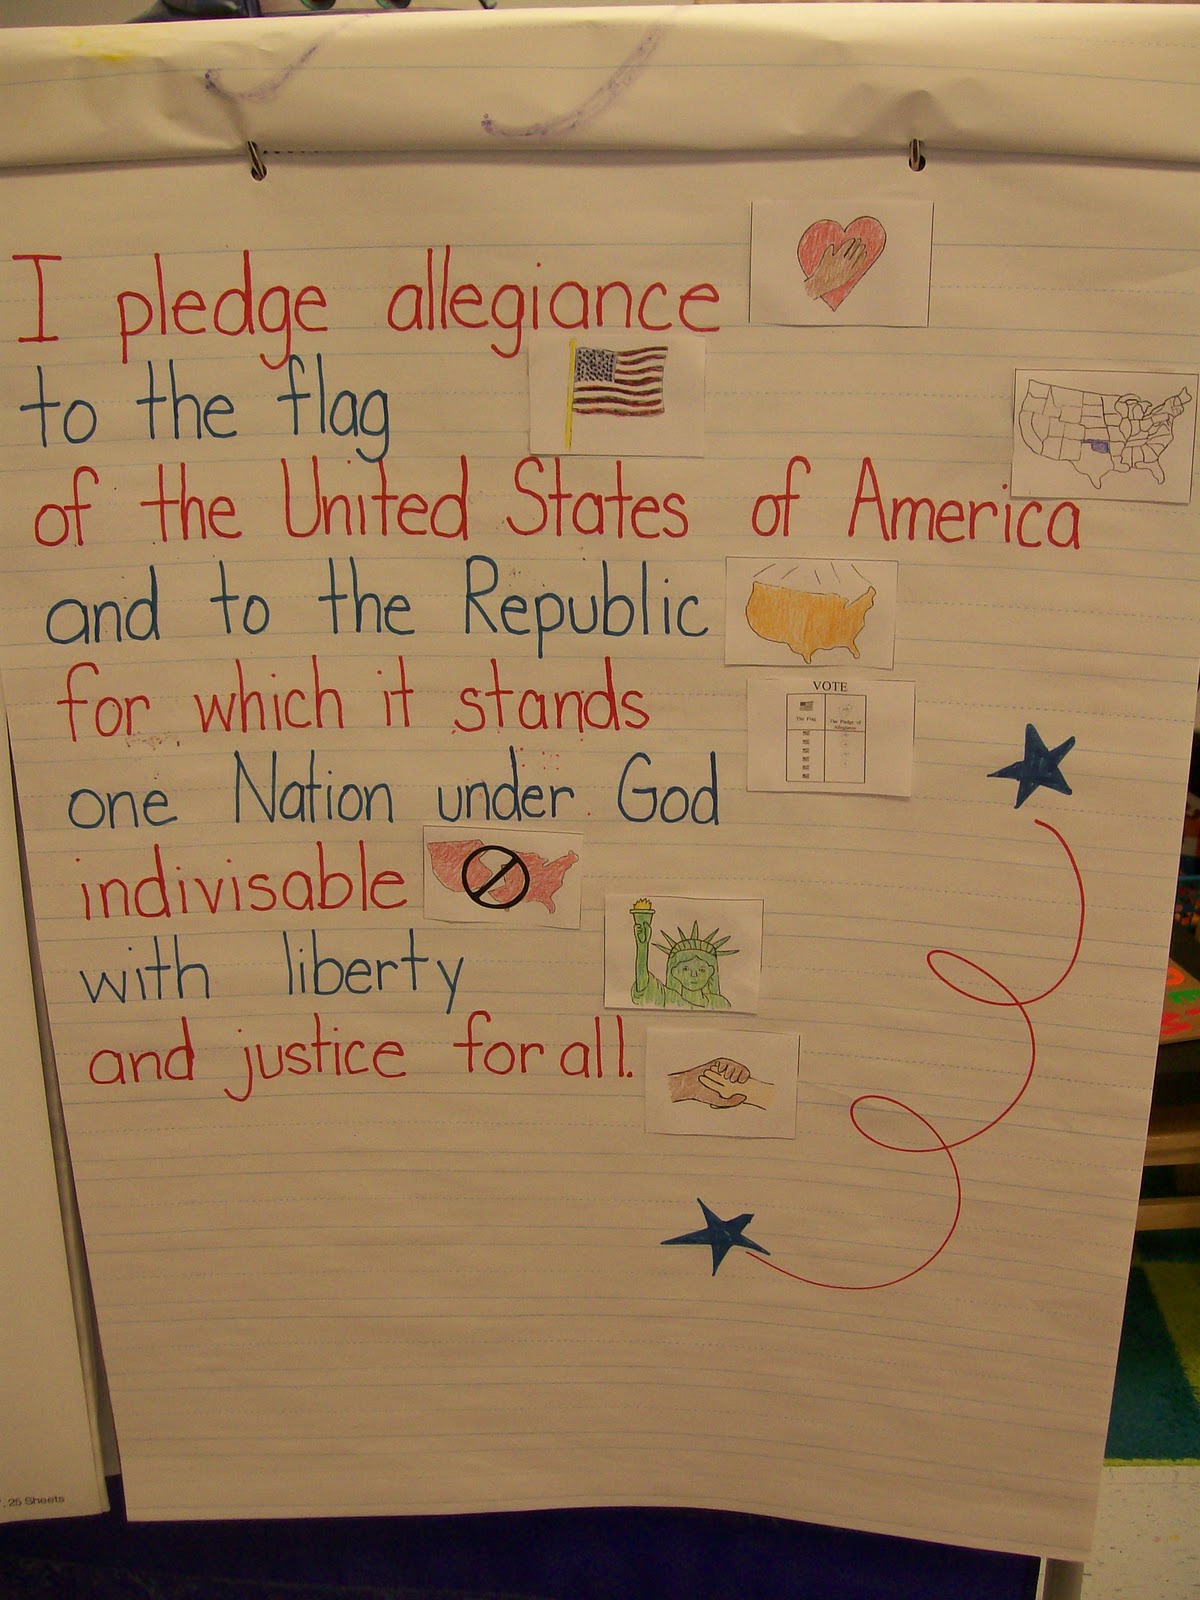 I pledge allegiance
to the flag
of the United States of America
and to the Republic
for which it stands
VOTE
The Flag
The Pledge of
Allegiance
one Nation under God
indivisable
with liberty
and justice for all.
25 Sheets